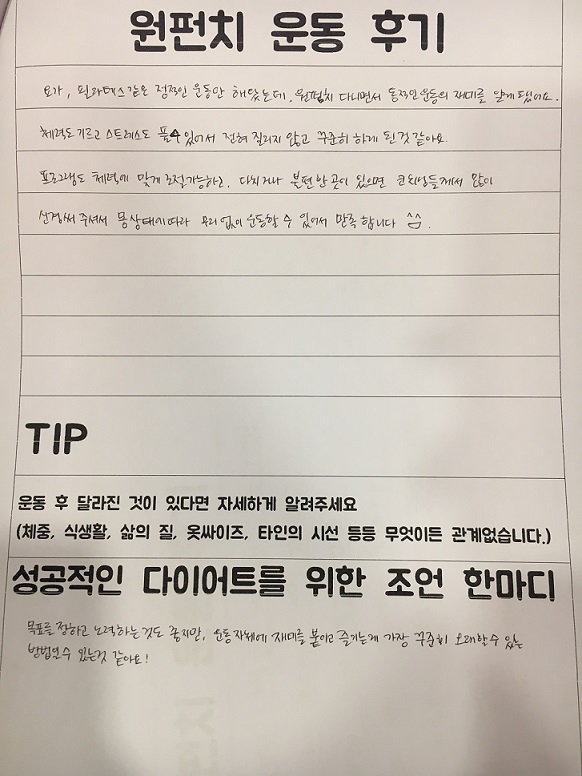 원펀치 운동 후기
요가, 필라테스같은 정적인 운동만 해왔는데, 원펀치 다니면서 동적인운동의 재미를 알게 됐어요.
체력도 기르고 스트레스도 풀수 있어서 전혀 질리지 않고 꾸준히 하게 된것 같아요.
프로그램도 체력에 맞게 조절가능하고, 다치거나 불편한 곳이 있으면 코치님들께서 많이
신경써 주셔서 몸상태에 따라 무리없이 운동할 수 있어서 만족합니다 ^^.
TIP
운동 후 달라진 것이 있다면 자세하게 알려주세요
(체중, 식생활, 삶의 질, 옷싸이즈, 타인의 시선 등등 무엇이든 관계없습니다.)
성공적인 다이어트를 위한 조언 한마디
목표를 정하고 노력하는것도 좋지만, 운동자체에 재미를 붙이고 즐기는게 가장 꾸준히 오래할수 있는
방법일수 있는것 같아요!